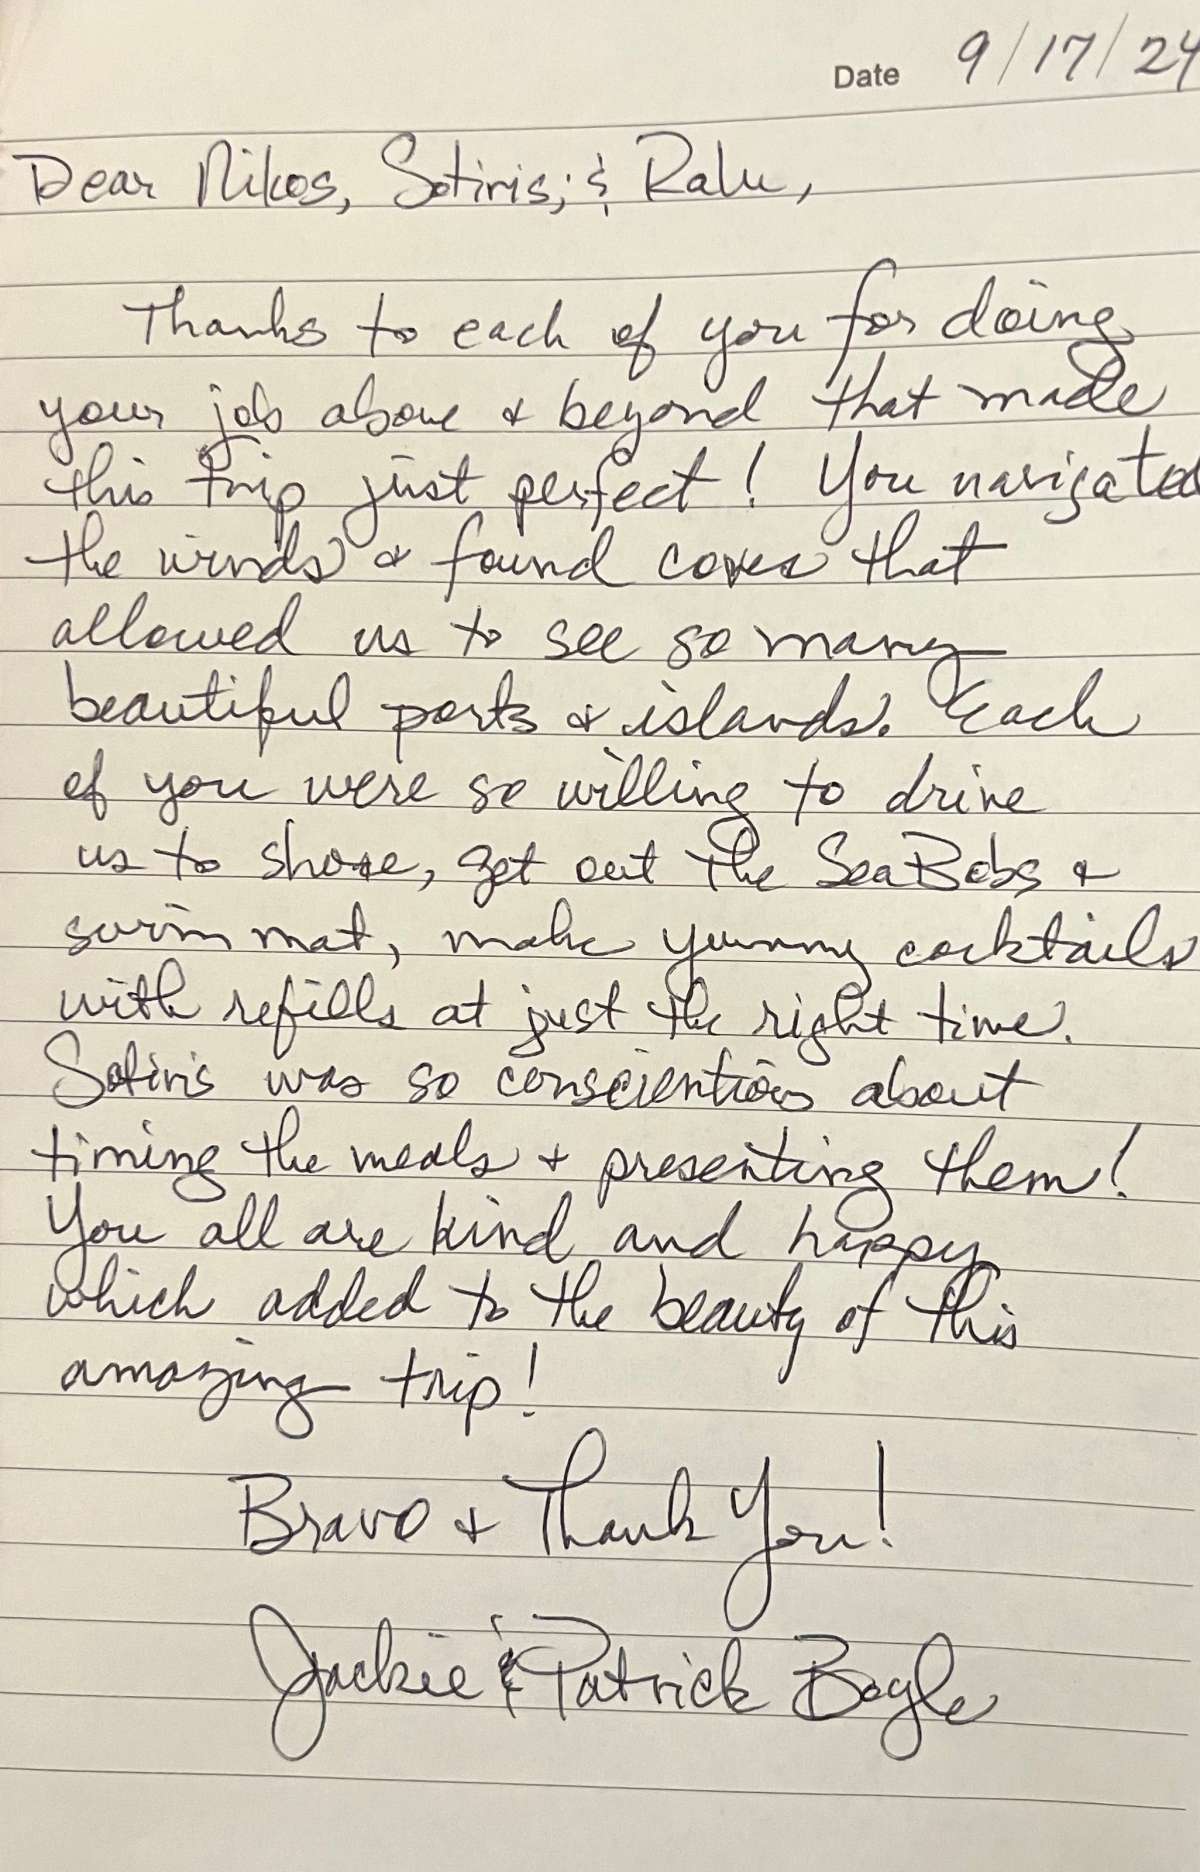 Date 9/17/24
Dear Nikos, Sotiris, & Ralu,
Thanks to each of you for doing
your job above & beyond that made
this trip just perfect! You navigated
the winds & found coves that
allowed us to see so many
beautiful ports & islands. Each
of you were so willing to drive
us to shore, get out the SeaBobs &
swim mat, make yummy cocktails
with refills at just the right time.
Sotiris was so conscientious about
timing the meals & presenting them!
You all are kind and happy
which added to the beauty of this
amazing trip!
Bravo & Thank You!
Jackie & Patrick Bogle